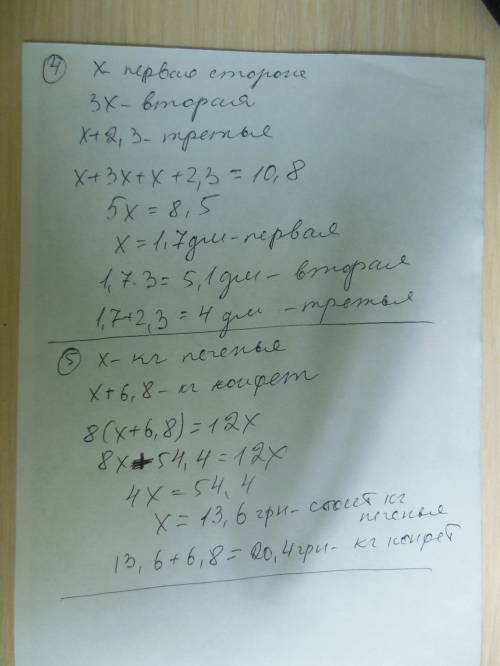 ④ x- первая сторона
3x- вторая
x+2,3- третья
x+3x+x+2,3=10,8
5x=8,5
x=1,7дм-первая
1,7·3=5,1дм- вторая
1,7+2,3=4 дм -третья
⑤ x- кг печенья
x+6,8- кг конфет
8(x+6,8)=12x
8x+54,4=12x
4x=54,4
x=13,6грн- стоит кг
печенья
13,6+6,8=20,4грн- кг конфет